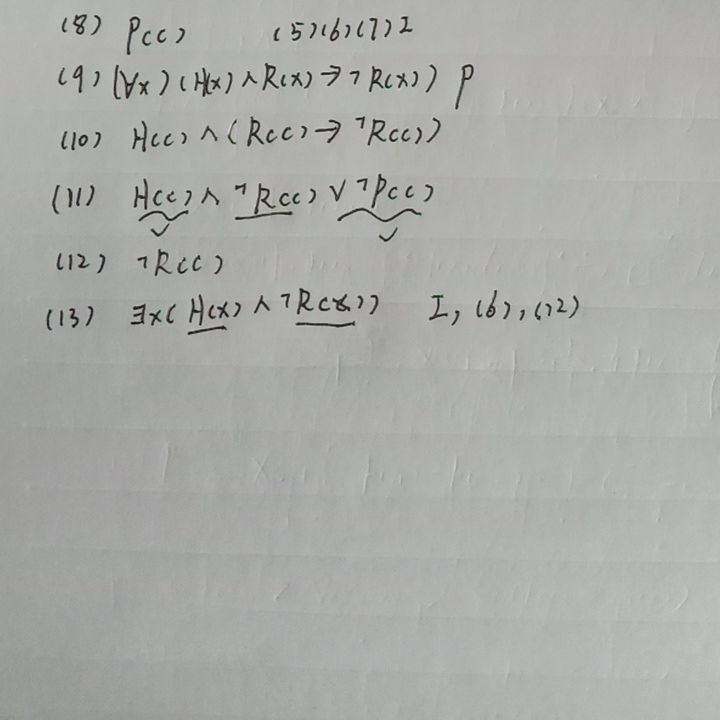 (8) P(c) (5)(6)(7) I
(9) (∀x)(H(x)∧R(x)→¬R(x)) P
(10) H(c)∧(R(c)→¬R(c))
(11) H(c)∧¬R(c)∨¬P(c)
(12) ¬R(c)
(13) ∃x(H(x)∧¬R(x)) I, (6), (12)